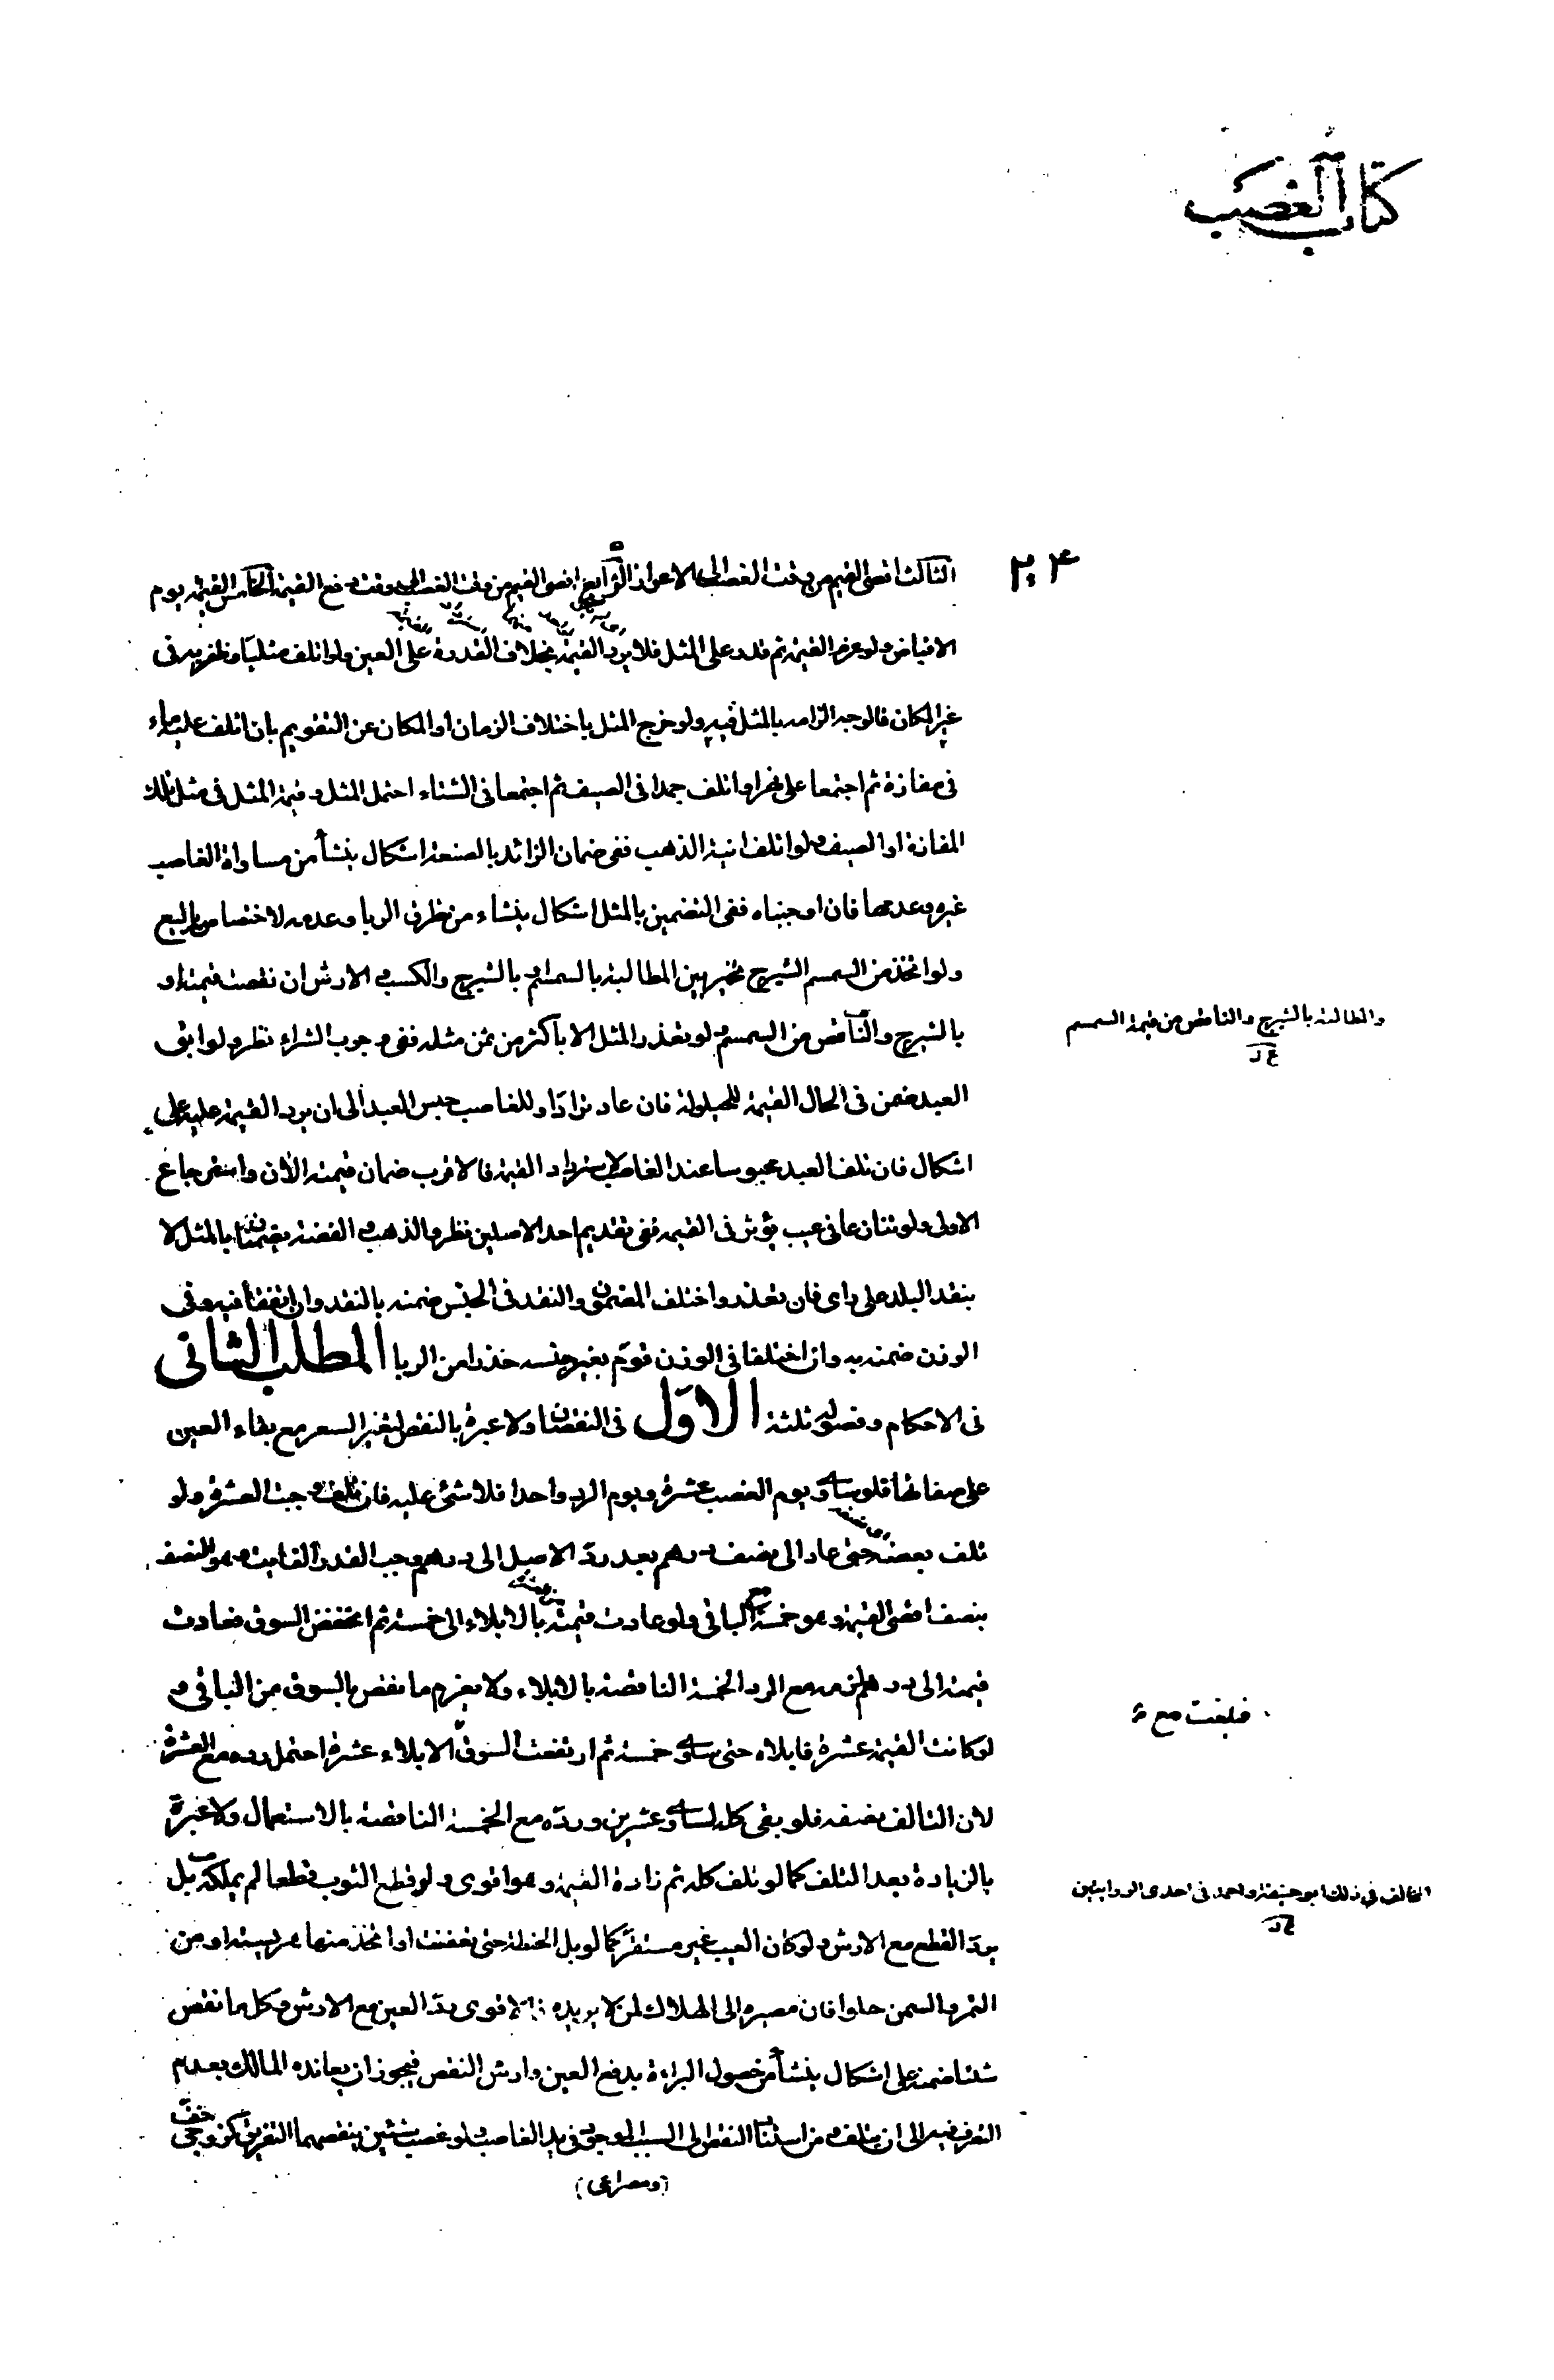 كتاب الغصب
٢٠٤
الثالث اقصى القيم من وقت الغصب الى الاعواز الرابع اقصى القيم من وقت الغصب الى وقت دفع القيمة الخامس القيمة يوم
الاقباض ولو غرم القيمة ثم قدر على المثل فلا يرد القيمة بخلاف القدرة على العين ولو اتلف مثليا وظفر به في
غير المكان فالوجه الزامه بالمثل فيه ولو خرج المثل باختلاف الزمان او المكان عن التقويم بان اتلف عليه ماء
في مفازة ثم اجتمعا على نهر او اتلف جمدا في الصيف ثم اجتمعا في الشتاء احتمل المثل و قيمة المثل في مثل تلك
المفازة او الصيف ولو اتلف انية الذهب ففي ضمان الزائد بالصنعة اشكال ينشأ من مساواة الغاصب
غيره وعدمها فان اوجبناه ففي التضمين بالمثل اشكال ينشاء من تطرق الربا وعدمه لاختصاصه بالبيع
ولو اتخذ من السمسم الشيرج تخير بين المطالبة بالسمسم او بالشيرج والكسب و الارش ان نقصت قيمته او
بالشيرج والناقص من السمسم ولو تعذر المثل الا بأكثر من ثمن مثله ففي وجوب الشراء نظر ولو ابق
والمطالبة بالشيرج والناقص من قيمة السمسم
خ ل
العبد ضمن في الحال القيمة للحيلولة فان عاد ترادا وللغاصب حبس العبد الى ان يرد القيمة عليه على
اشكال فان تلف العبد محبوسا عند الغاصب لاسترداد القيمة فالاقرب ضمان قيمته الان واسترجاع
الاولى ولو تنازعا في عيب يؤثر في القيمة ففي تقديم احد الاصلين نظر والذهب و الفضة يضمنان بالمثل لا
بنقد البلد على راي فان تعذر واختلف المضمون والنقد في الجنس ضمنه بالنقد وان اتفقا فيه وفي
الوزن ضمنه به وان اختلفا في الوزن قوم بغير جنسه حذرا من الربا المطلب الثاني
في الاحكام وفصوله ثلثة الاول في النقصان ولا عبرة بالنقص لتغير السعر مع بقاء العين
على صفاتها فلو ساوى يوم الغصب عشرة ويوم الرد واحدا فلا شئ عليه فان تلف وجبت العشرة ولو
تلف بعضه حتى عاد الى نصف درهم بعد رد الاصل الى درهم وجب القدر الفايت و هو النصف
بنصف اقصى القيمة وهو خمسة مع الباقي ولو عادت قيمته بالابلاء الى خمسة ثم انخفض السوق فعادت
قيمته الى درهم لزمه مع الرد الخمسة الناقصة بالابلاء ولا يغرم ما نقص بالسوق من الباقي و
فبلغت مع
لو كانت القيمة عشرة فابلاه حتى ساوى خمسة ثم ارتفعت السوق الابلاء عشرة احتمل رده مع العشرة
لان التالف نصفه فلو بقى كله لساوى عشرين ورده مع الخمسة الناقصة بالاستعمال ولا عبرة
بالزيادة بعد التلف كما لو تلف كله ثم زادت القيمة وهو اقوى ولو قطع الثوب قطعا لم يملكه بل
المخالف في ذلك ابو حنيفة واحمد في احدى الروايتين
خ ل
يرد القطع مع الارش ولو كان العيب غير مستقر كما لو بل الحنطة حتى تعفنت او اتخذ منها هريسة او من
التمر والسمن حلوا فان مصيره الى الهلاك لمن لا يريده فالاقوى رد العين مع الارش وكل ما نقص
شئا ضمنه على اشكال ينشأ من حصول البراءة بدفع العين وارش النقص فيجوز ان يعانده المالك بعدم
التصرف فيه الى ان يتلف و من استناد النقص الى السبب الموجود في يد الغاصب ولو غصب شيئين ينقصهما التفريق كزوجي خف
(ومصراعي)